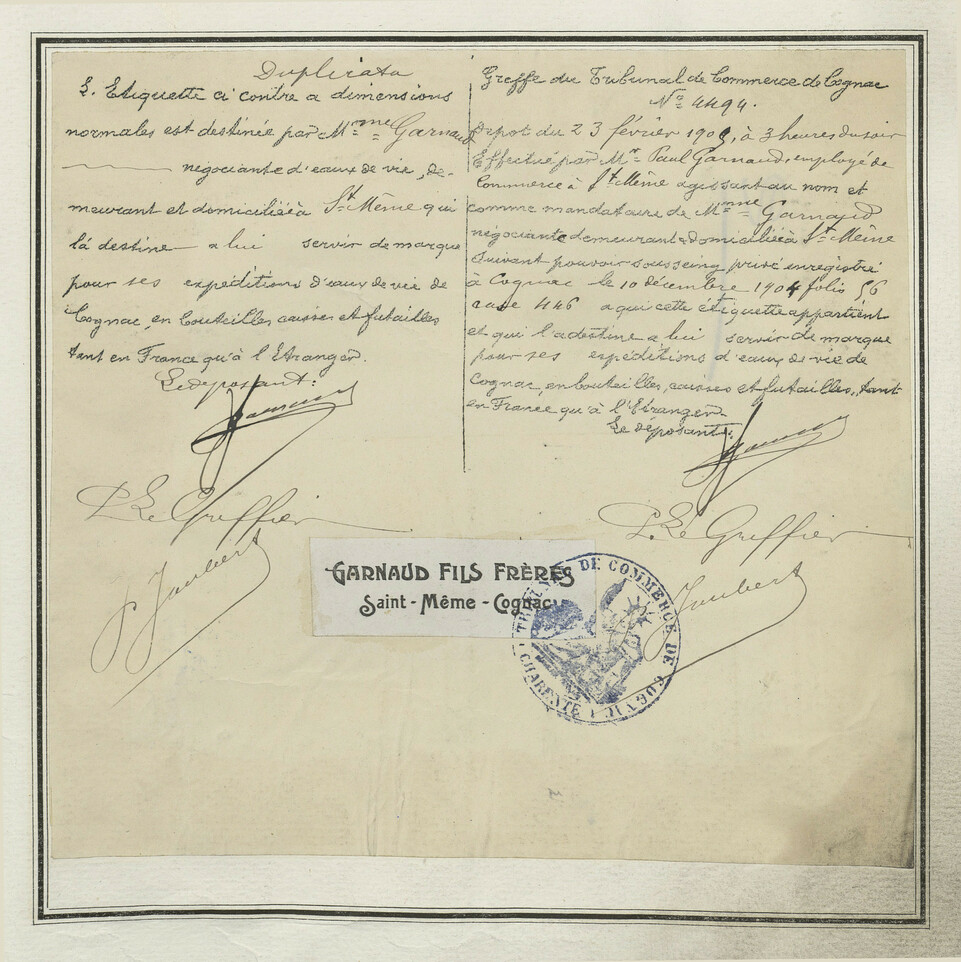 Duplicata
L. Etiquette ci contre a dimensions
normales est destinée par Mme Garnaud
négociante d'eaux de vie, de-
meurant et domiciliée à St Même qui
la destine a lui servir de marque
pour ses expéditions d'eaux de vie de
Cognac, en bouteilles caisses et futailles
tant en France qu'à l'Etranger.
Le déposant:
P. Le Greffier
Joubert
Greffe du Tribunal de Commerce de Cognac
No 4494.
Depot du 23 février 1905, à 3 heures du soir
Effectué par Mr Paul Garnaud, employé de
Commerce à St Même agissant au nom et
comme mandataire de Mme Garnaud
négociante demeurant & domiciliée à St Même
suivant pouvoir sousseing privé enregistré
à Cognac le 10 décembre 1904 folio 56
case 446 a qui cette étiquette appartient
et qui l'a destine a lui servir de marque
pour ses expéditions d'eaux de vie de
Cognac, en bouteilles, caisses et futailles, tant
en France qu'à l'Etranger
Le déposant:
P. Le Greffier
Joubert
GARNAUD FILS FRÈRES
Saint-Même-Cognac
TRIBUNAL DE COMMERCE DE COGNAC
CHARENTE